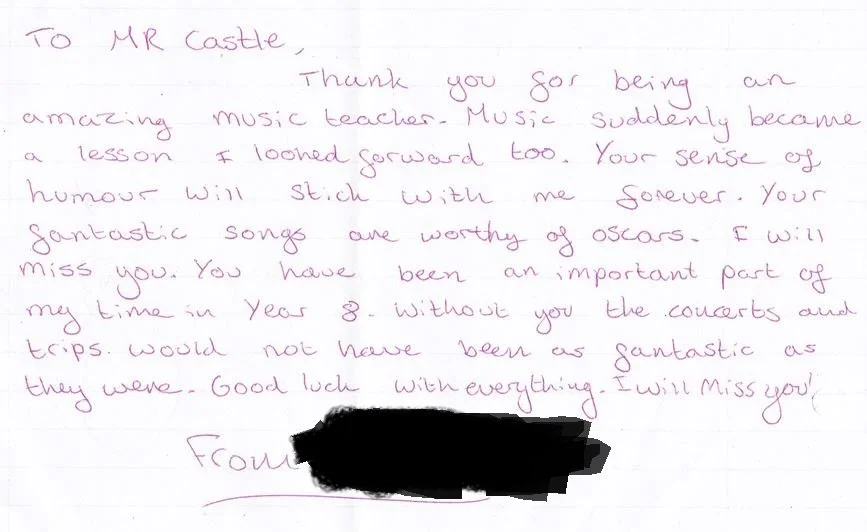 To MR Castle,
Thank you for being an
amazing music teacher. Music suddenly became
a lesson I looked forward too. Your sense of
humour will stick with me forever. Your
fantastic songs are worthy of oscars. I will
miss you. You have been an important part of
my time in Year 8. Without you the concerts and
trips would not have been as fantastic as
they were. Good luck with everything. I will Miss you!
From